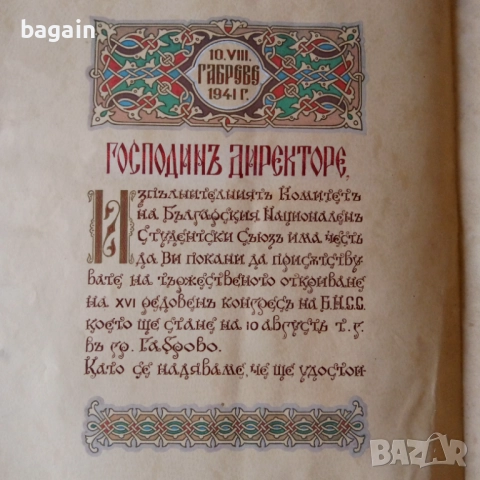 bagain
10.VIII.
ГАБРОВО
1941 Г.
ГОСПОДИНЪ ДИРЕКТОРЕ,
ИЗПЪЛНИТЕЛНИЯТЪ КОМИТЕТЪ
НА БЪЛГАРСКИЯ НАЦИОНАЛЕНЪ
СТУДЕНТСКИ СЪЮЗЪ ИМА ЧЕСТЬ
ДА ВИ ПОКАНИ ДА ПРИСѪТСТВУ-
ВАТЕ НА ТЪРЖЕСТВЕНОТО ОТКРИВАНЕ
НА XVI РЕДОВЕНЪ КОНГРЕСЪ НА Б.Н.С.С.
КОЕТО ЩЕ СТАНЕ НА 10 АВГУСТЪ Т. Г.
ВЪ ГР. ГАБРОВО.
КАТО СЕ НАДЯВАМЕ, ЧЕ ЩЕ УДОСТОИ-
BAZAR